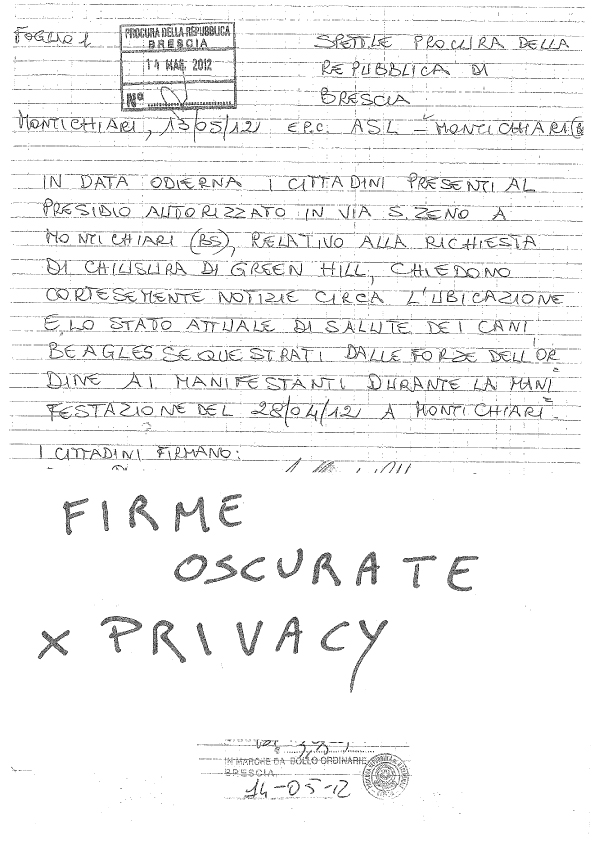 FOGLIO 1
PROCURA DELLA REPUBBLICA
BRESCIA
14 MAG. 2012
N°
SPETT.LE PROCURA DELLA
REPUBBLICA DI
BRESCIA
MONTICHIARI, 13/05/12 E P.C. ASL - MONTICHIARI
IN DATA ODIERNA I CITTADINI PRESENTI AL
PRESIDIO AUTORIZZATO IN VIA S. ZENO A
MONTICHIARI (BS), RELATIVO ALLA RICHIESTA
DI CHIUSURA DI GREEN HILL, CHIEDONO
CORTESEMENTE NOTIZIE CIRCA L'UBICAZIONE
E LO STATO ATTUALE DI SALUTE DEI CANI
BEAGLES SEQUESTRATI DALLE FORZE DELL'OR
DINE AI MANIFESTANTI DURANTE LA MANI
FESTAZIONE DEL 28/04/12 A MONTICHIARI.
I CITTADINI FIRMANO:
FIRME
OSCURATE
X PRIVACY
IN MARCHE DA BOLLO ORDINARIE
BRESCIA
14-05-12